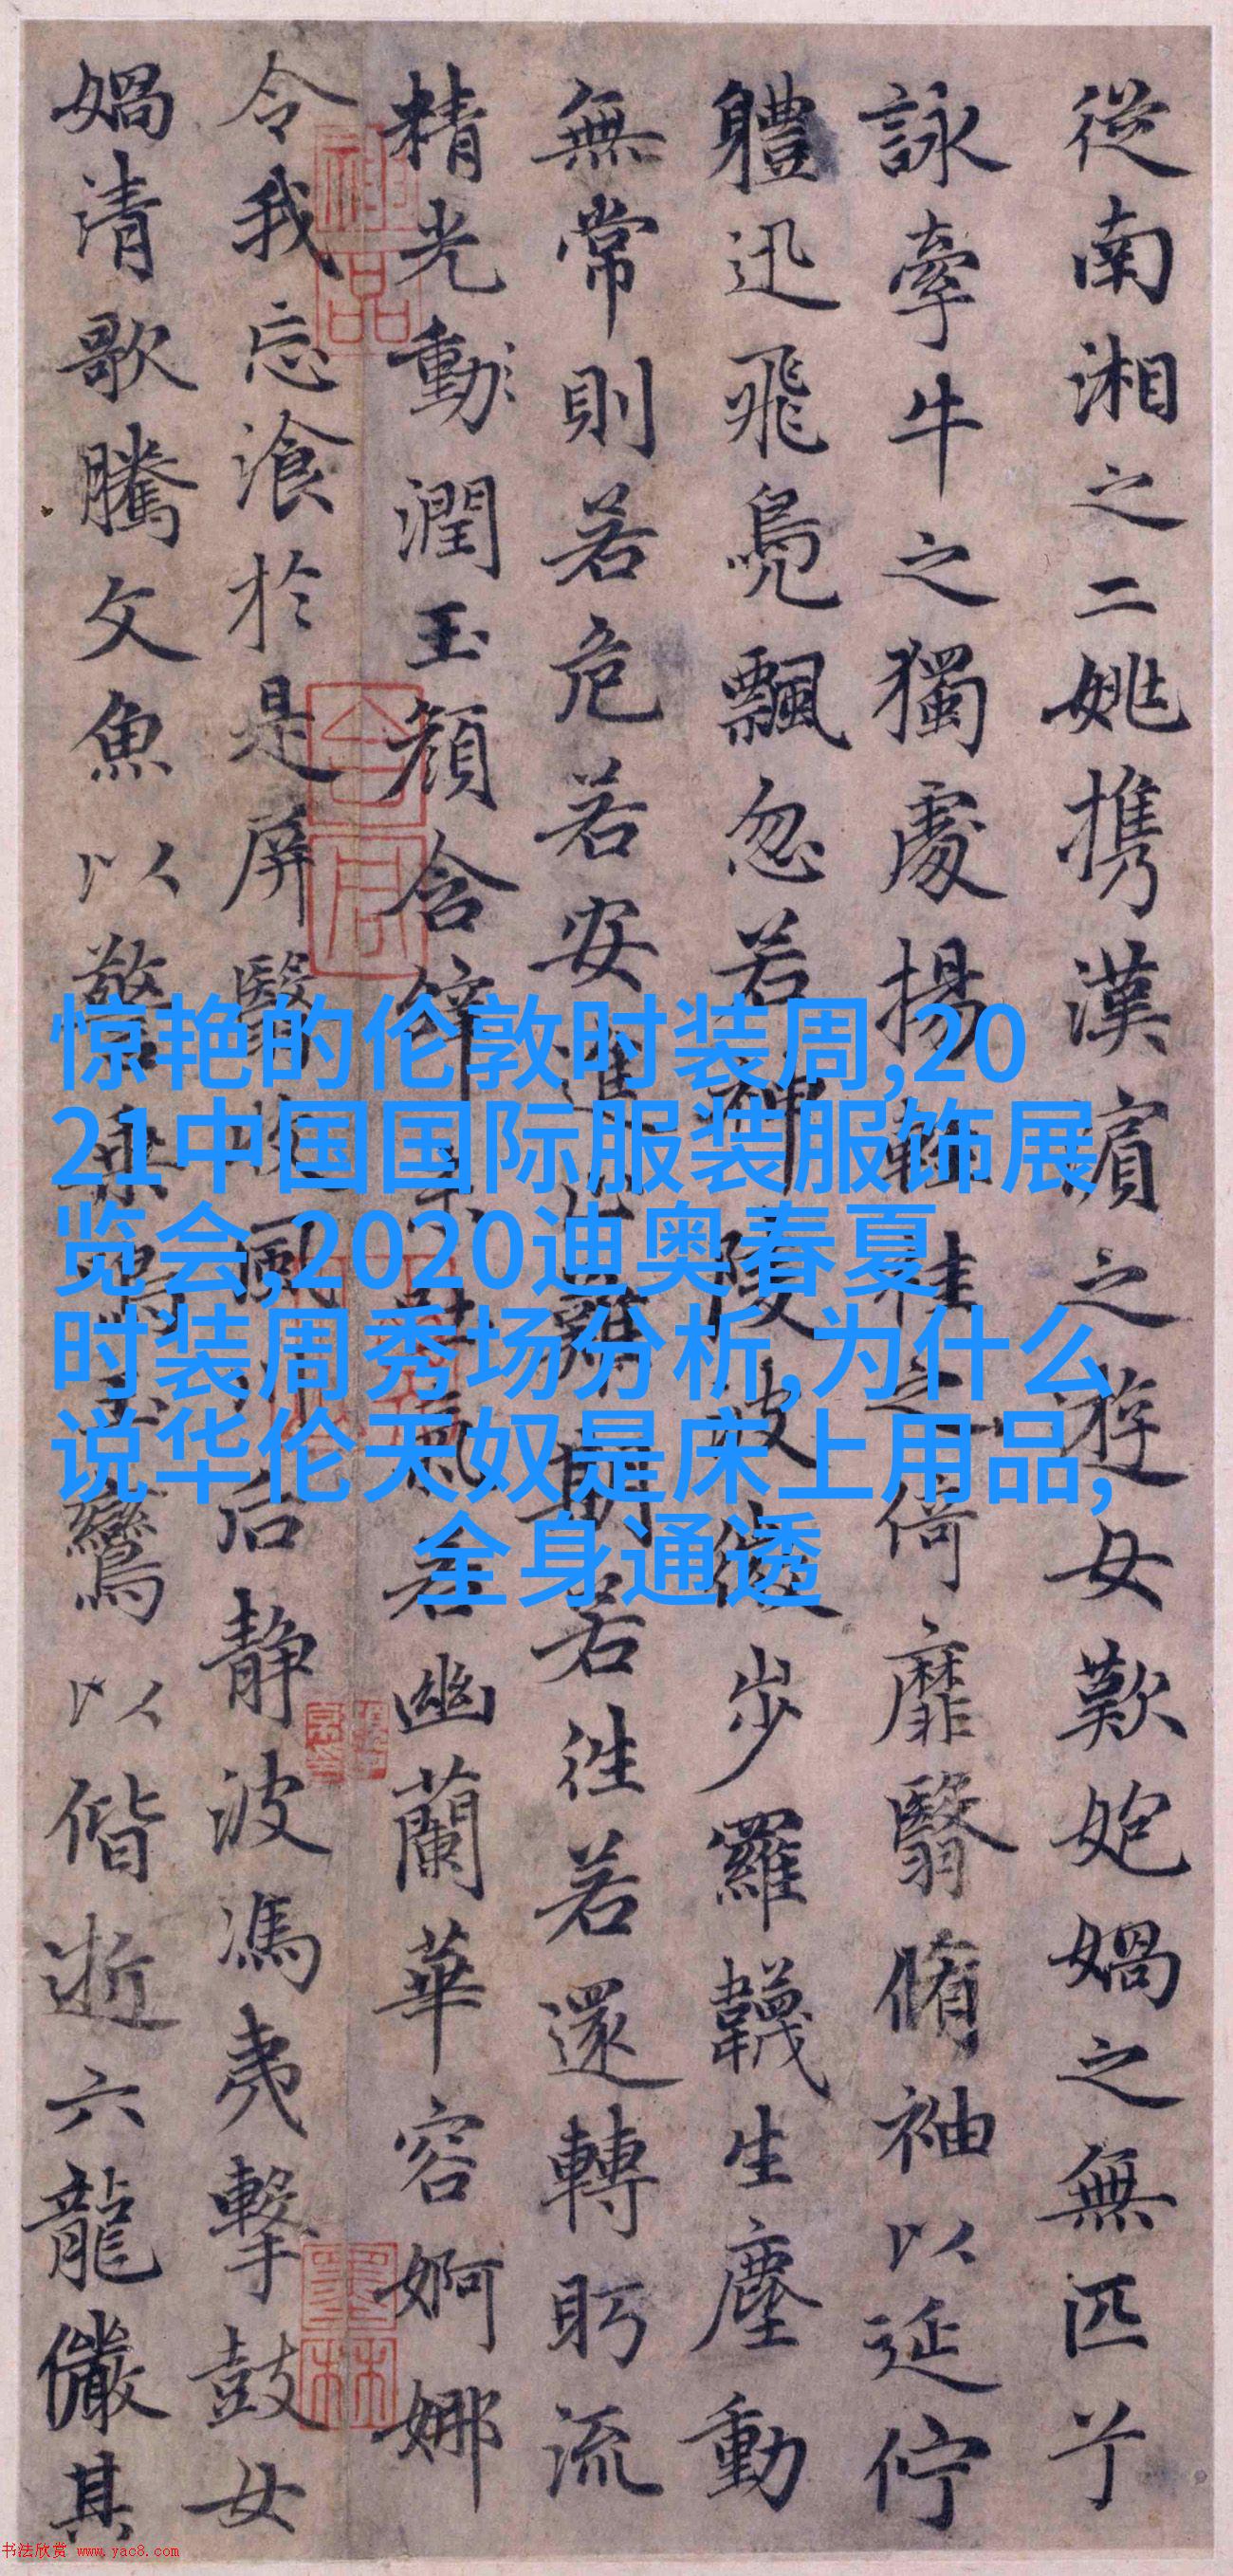 從南湘之二姚携漢濱之遊女歎匏媧之無匹兮
詠牽牛之獨處揚輕袿之倚靡翳脩袖以延佇
軆迅飛鳧飄忽若神陵波微步羅韈生塵動
無常則若危若安進止難期若往若還轉眄流
精光動潤玉顏含辭未吐氣若幽蘭華容婀娜
令我忘飡於是屏翳收風川后静波馮夷擊鼓女
媧清歌騰文魚以警乘鳴玉鸞以偕逝六龍儼其
惊艳的伦敦时装周,20
21中国国际服装服饰展
览会,2020迪奥春夏
时装周秀场分析,为什么
说华伦天奴是床上用品,
全身通透
书法欣赏 www.yac8.com